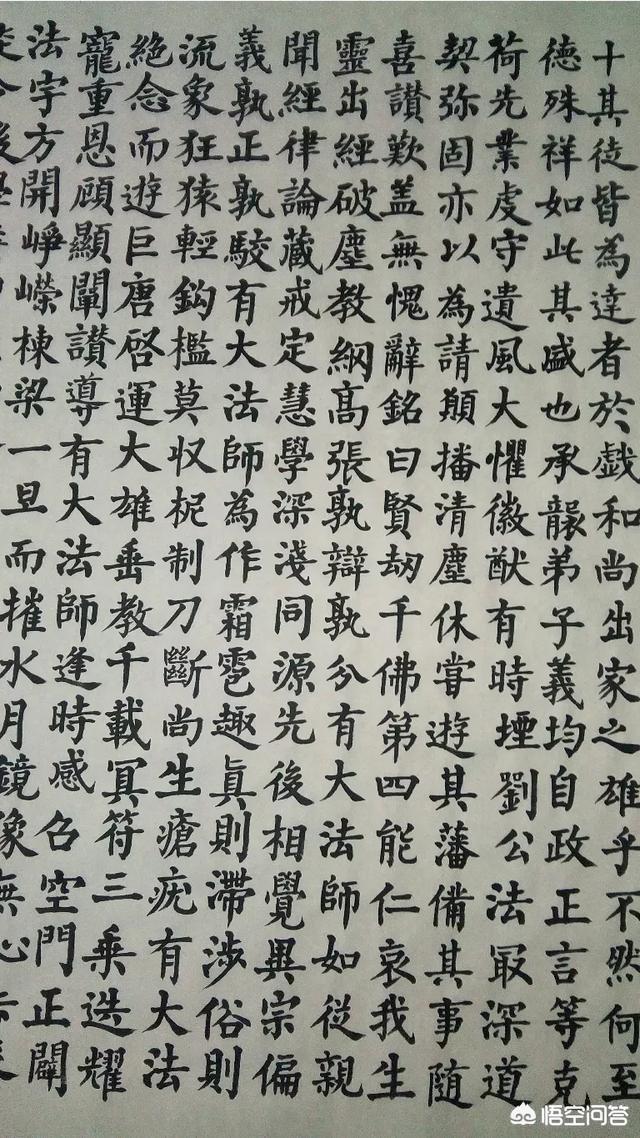 十其徒皆為達者於戯和尚出家之雄乎不然何至
德殊祥如此其盛也承襲弟子義均自政正言等克
荷先業虔守遺風大懼徽猷有時堙劉公法最深道
契弥固亦以為請願播清塵休嘗遊其藩備其事隨
喜讃歎盖無愧辭銘曰賢劫千佛第四能仁哀我生
靈出經破塵教綱高張孰辯孰分有大法師如從親
聞經律論藏戒定慧學深淺同源先後相覺異宗偏
義孰正孰駮有大法師為作霜雹趣真則滯涉俗則
流象狂猿輕鈎檻莫収柅制刀斷尚生瘡疣有大法
絶念而遊巨唐啓運大雄垂教千載冥符三乗迭耀
寵重恩顧顯闡讃導有大法師逢時感召空門正闢
法字方開崢嶸棟梁一旦而摧水月鏡像無心
悟空问答